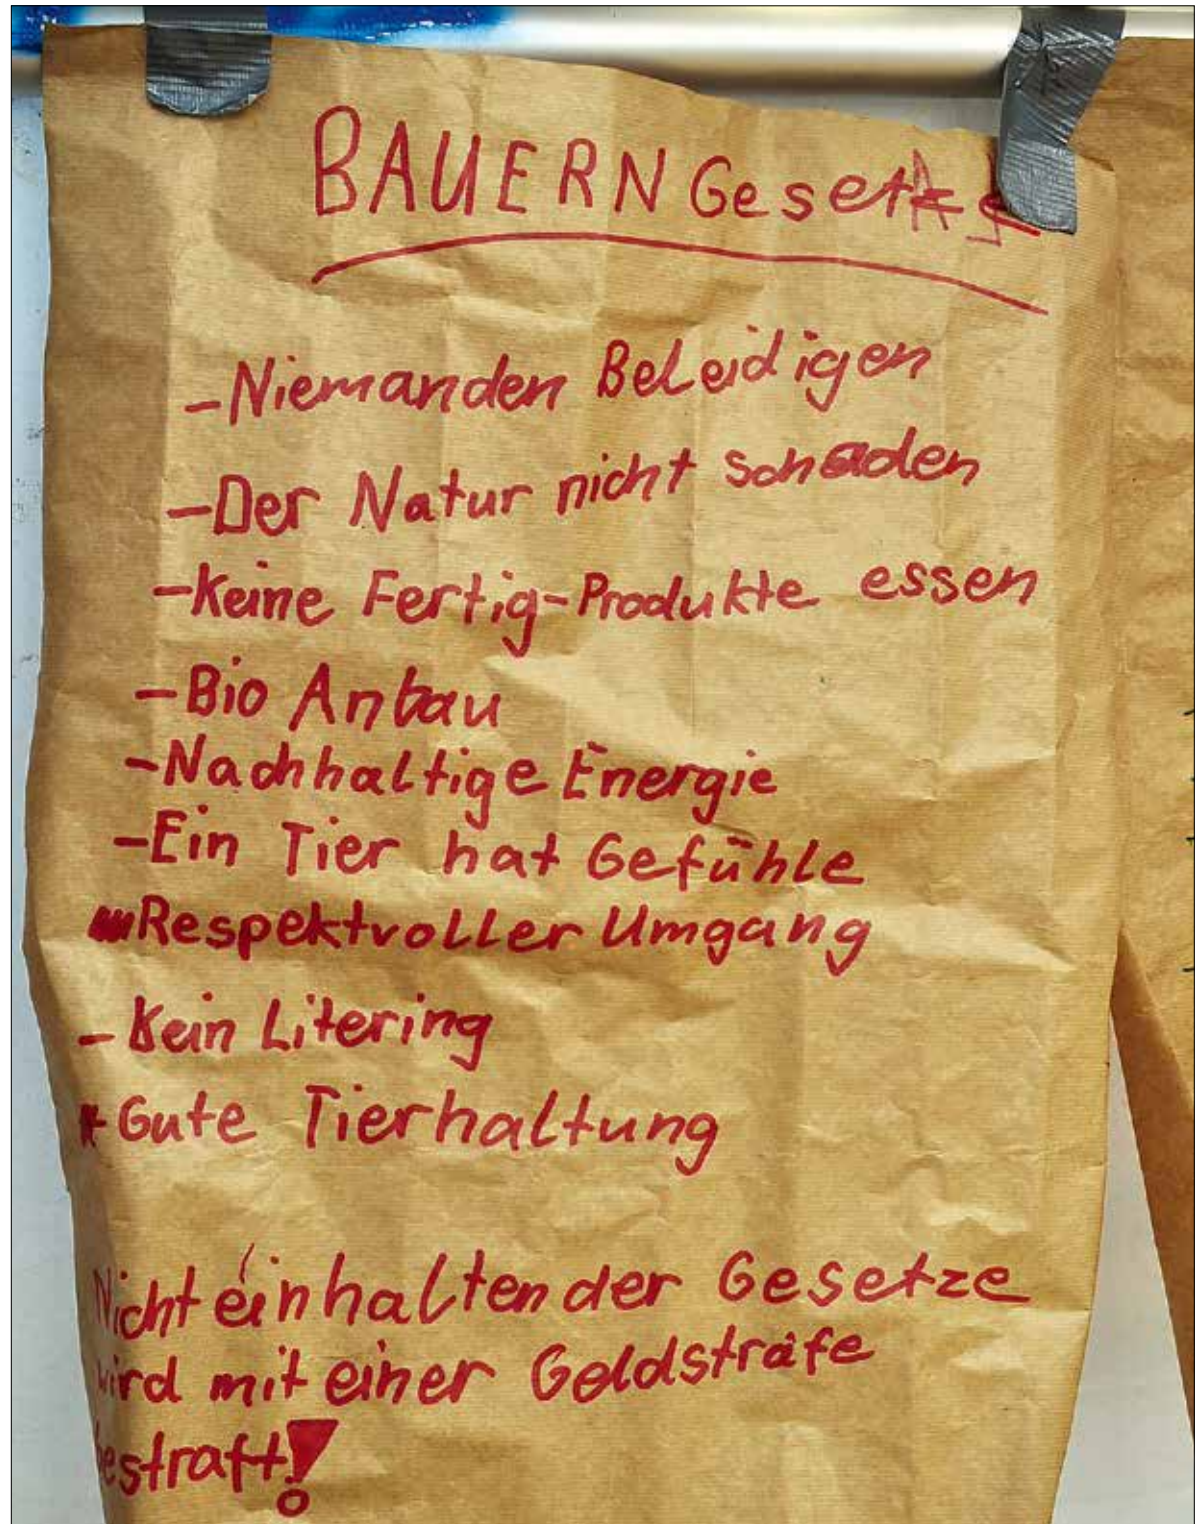 BAUERN Gesetze
- Niemanden Beleidigen
- Der Natur nicht schaden
- Keine Fertig-Produkte essen
- Bio Anbau
- Nachhaltige Energie
- Ein Tier hat Gefühle
- Respektvoller Umgang
- Kein Litering
- Gute Tierhaltung
Nicht einhalten der Gesetze
wird mit einer Geldstrafe
bestraft!